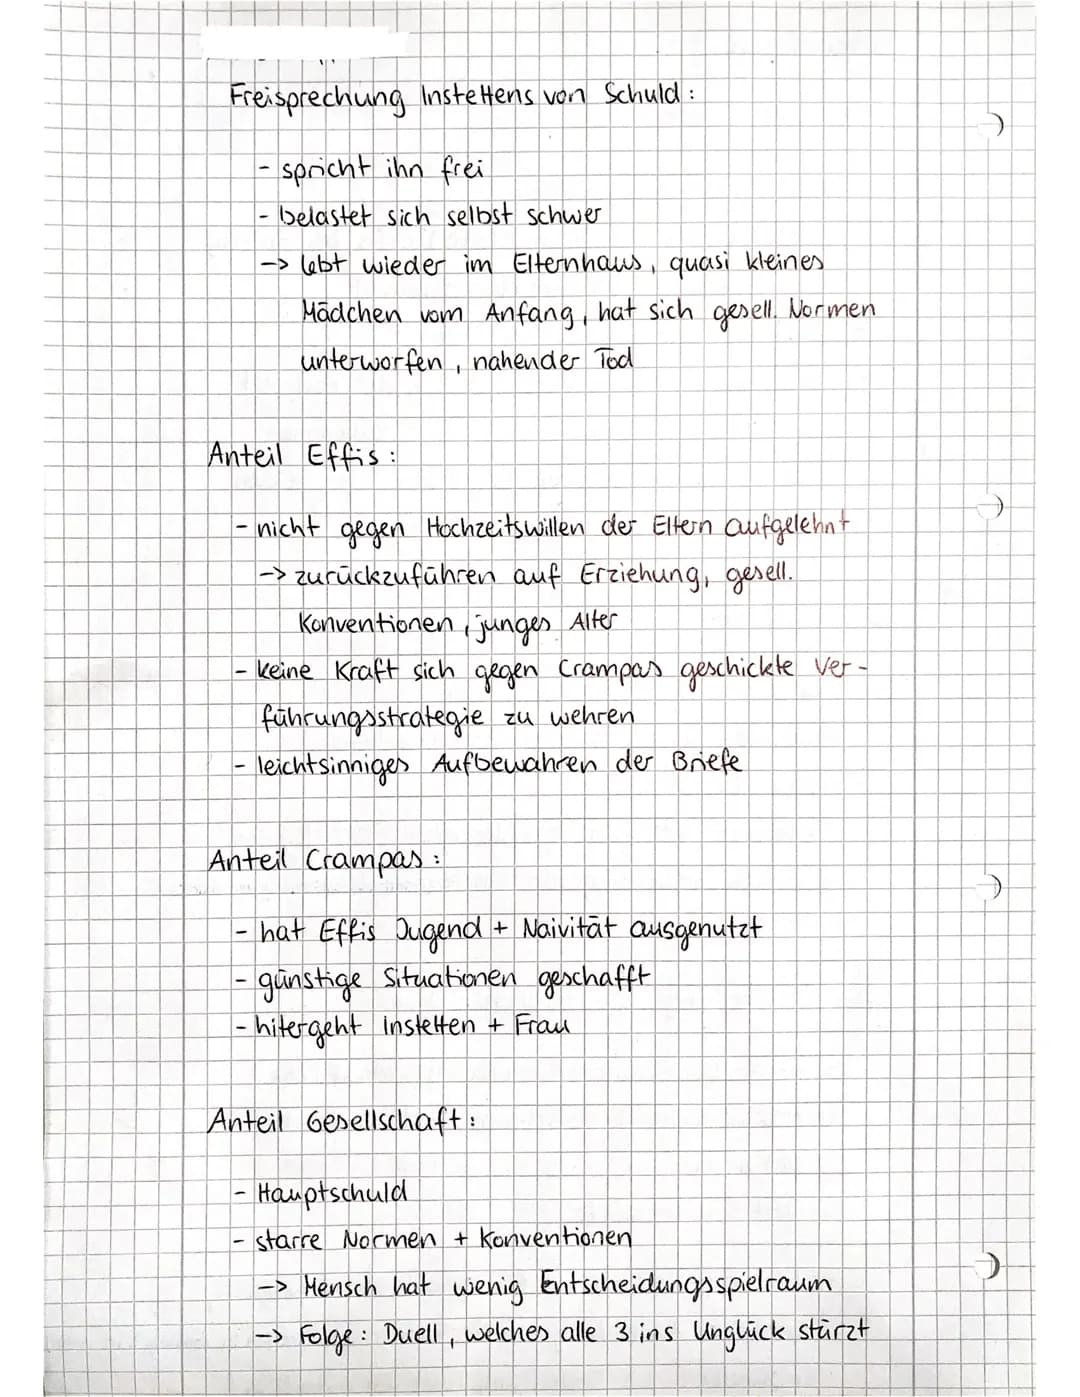 Freisprechung Instettens von Schuld:
- spricht ihn frei
- belastet sich selbst schwer
-> lebt wieder im Elternhaus, quasi kleines
Mädchen vom Anfang, hat sich gesell. Normen
unterworfen, nahender Tod
Anteil Effis:
- nicht gegen Hochzeitswillen der Eltern aufgelehnt
-> zurückzuführen auf Erziehung, gesell.
Konventionen, junges Alter
- keine Kraft sich gegen Crampas geschickte Ver-
führungsstrategie zu wehren
- leichtsinniges Aufbewahren der Briefe
Anteil Crampas:
- hat Effis Jugend + Naivität ausgenutzt
- günstige Situationen geschafft
- hitergeht instetten + Frau
Anteil Gesellschaft:
- Hauptschuld
- starre Normen + Konventionen
-> Mensch hat wenig Entscheidungsspielraum
-> Folge: Duell, welches alle 3 ins Unglück stürzt